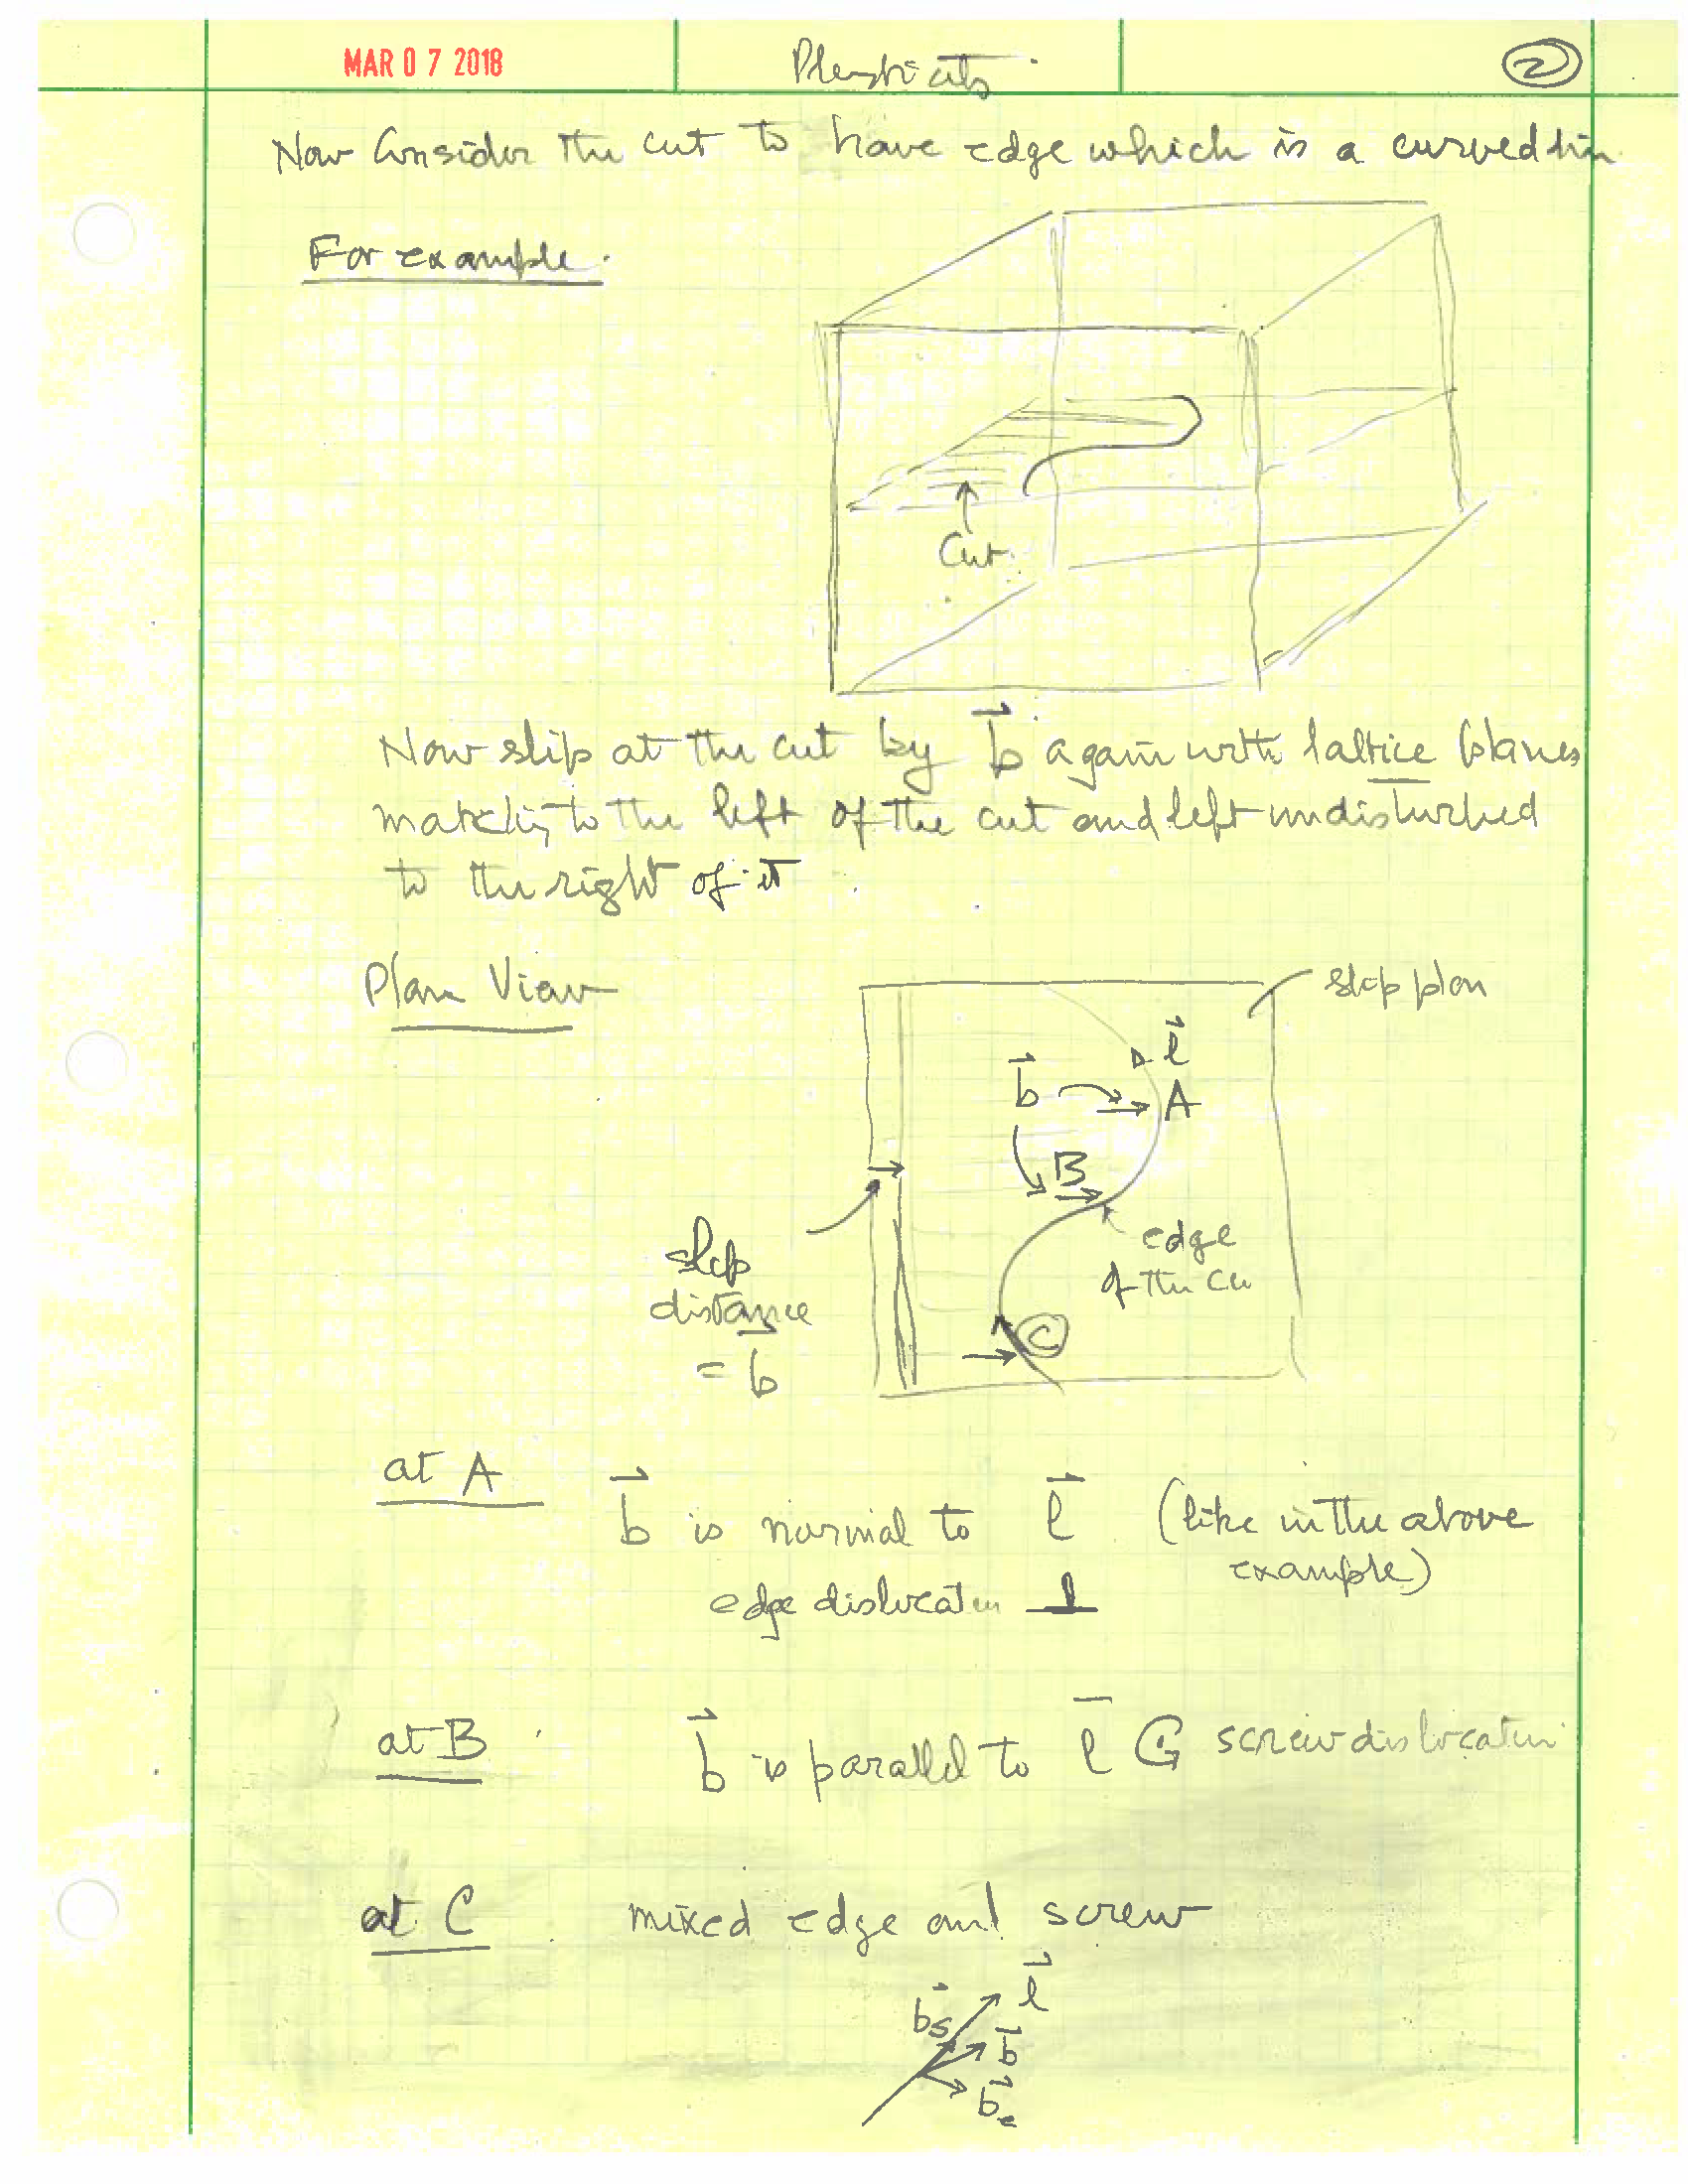 MAR 07 2018 Plasticity 2
Now Consider the cut to have edge which is a curved lin
For example.
Cut
Now slip at the cut by b again with lattice planes
matching to the left of the cut and left undisturbed
to the right of it
Plane View
slip plan
l
b A
B
edge
of the cu
slip
distance
= b
C
at A b is normal to l (like in the above
example)
edge dislocation ⊥
at B b is parallel to l G screw dislocation
at C mixed edge and screw
l
bs
b
be